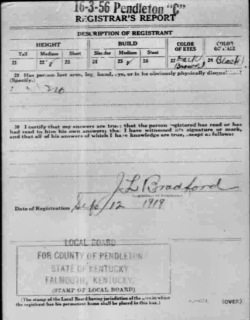 16-3-56 Pendleton "C"
REGISTRAR'S REPORT
DESCRIPTION OF REGISTRANT
HEIGHT BUILD COLOR OF EYES COLOR OF HAIR
Tall Medium Short Slender Medium Stout
21 22 23 24 25 26 27 28 Black
29 Has person lost arm, leg, hand, eye, or is he obviously physically disqualified?
(Specify.)
no
30 I certify that my answers are true; that the person registered has read or has
had read to him his own answers; that I have witnessed his signature or mark,
and that all of his answers of which I have knowledge are true, except as follows:
J L Bradford
Date of Registration Sept 12 1918
LOCAL BOARD
FOR COUNTY OF PENDLETON
STATE OF KENTUCKY
FALMOUTH, KENTUCKY.
(STAMP OF LOCAL BOARD)
(The stamp of the Local Board having jurisdiction of the area in which
the registrant has his permanent home shall be placed in this box.)
(OVER)